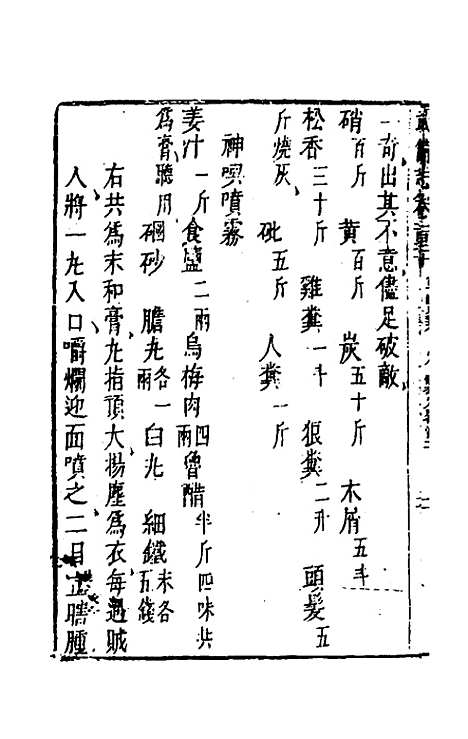 武備志卷一百二十
一奇出其不意儘足破敵
硝百斤 黄百斤 炭五十斤 木屑五斗
松香三十斤 雞糞一斗 狼糞二升 頭髮五
斤燒灰 砒五斤 人糞一斤
神㗩噴霧
姜汁一斤食鹽二兩烏梅肉四兩魯醋半斤四味共
爲膏聽用 硇砂 膽礬各一兩 白礬 細鐵末各五錢
右共爲末和膏丸指頂大揚塵爲衣每遇賊
人將一丸入口嚼爛迎面噴之二目立瞎腫